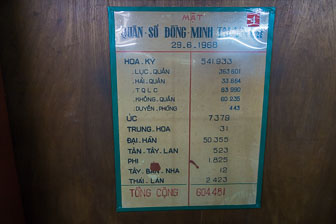 MẬT
QUÂN-SỐ ĐỒNG MINH TẠI
29.6.1968
HOA.KỲ 541933
LỤC.QUÂN 363801
HẢI.QUÂN 33664
T Q L C 83990
KHÔNG.QUÂN 60235
DUYÊN.PHÒNG 443
ÚC 7379
TRUNG.HOA 31
ĐẠI.HÀN 50.355
TÂN.TÂY.LAN 523
PHI 1.825
TÂY.BAN.NHA 12
THÁI.LAN 2.423
TỔNG CỘNG 604.481